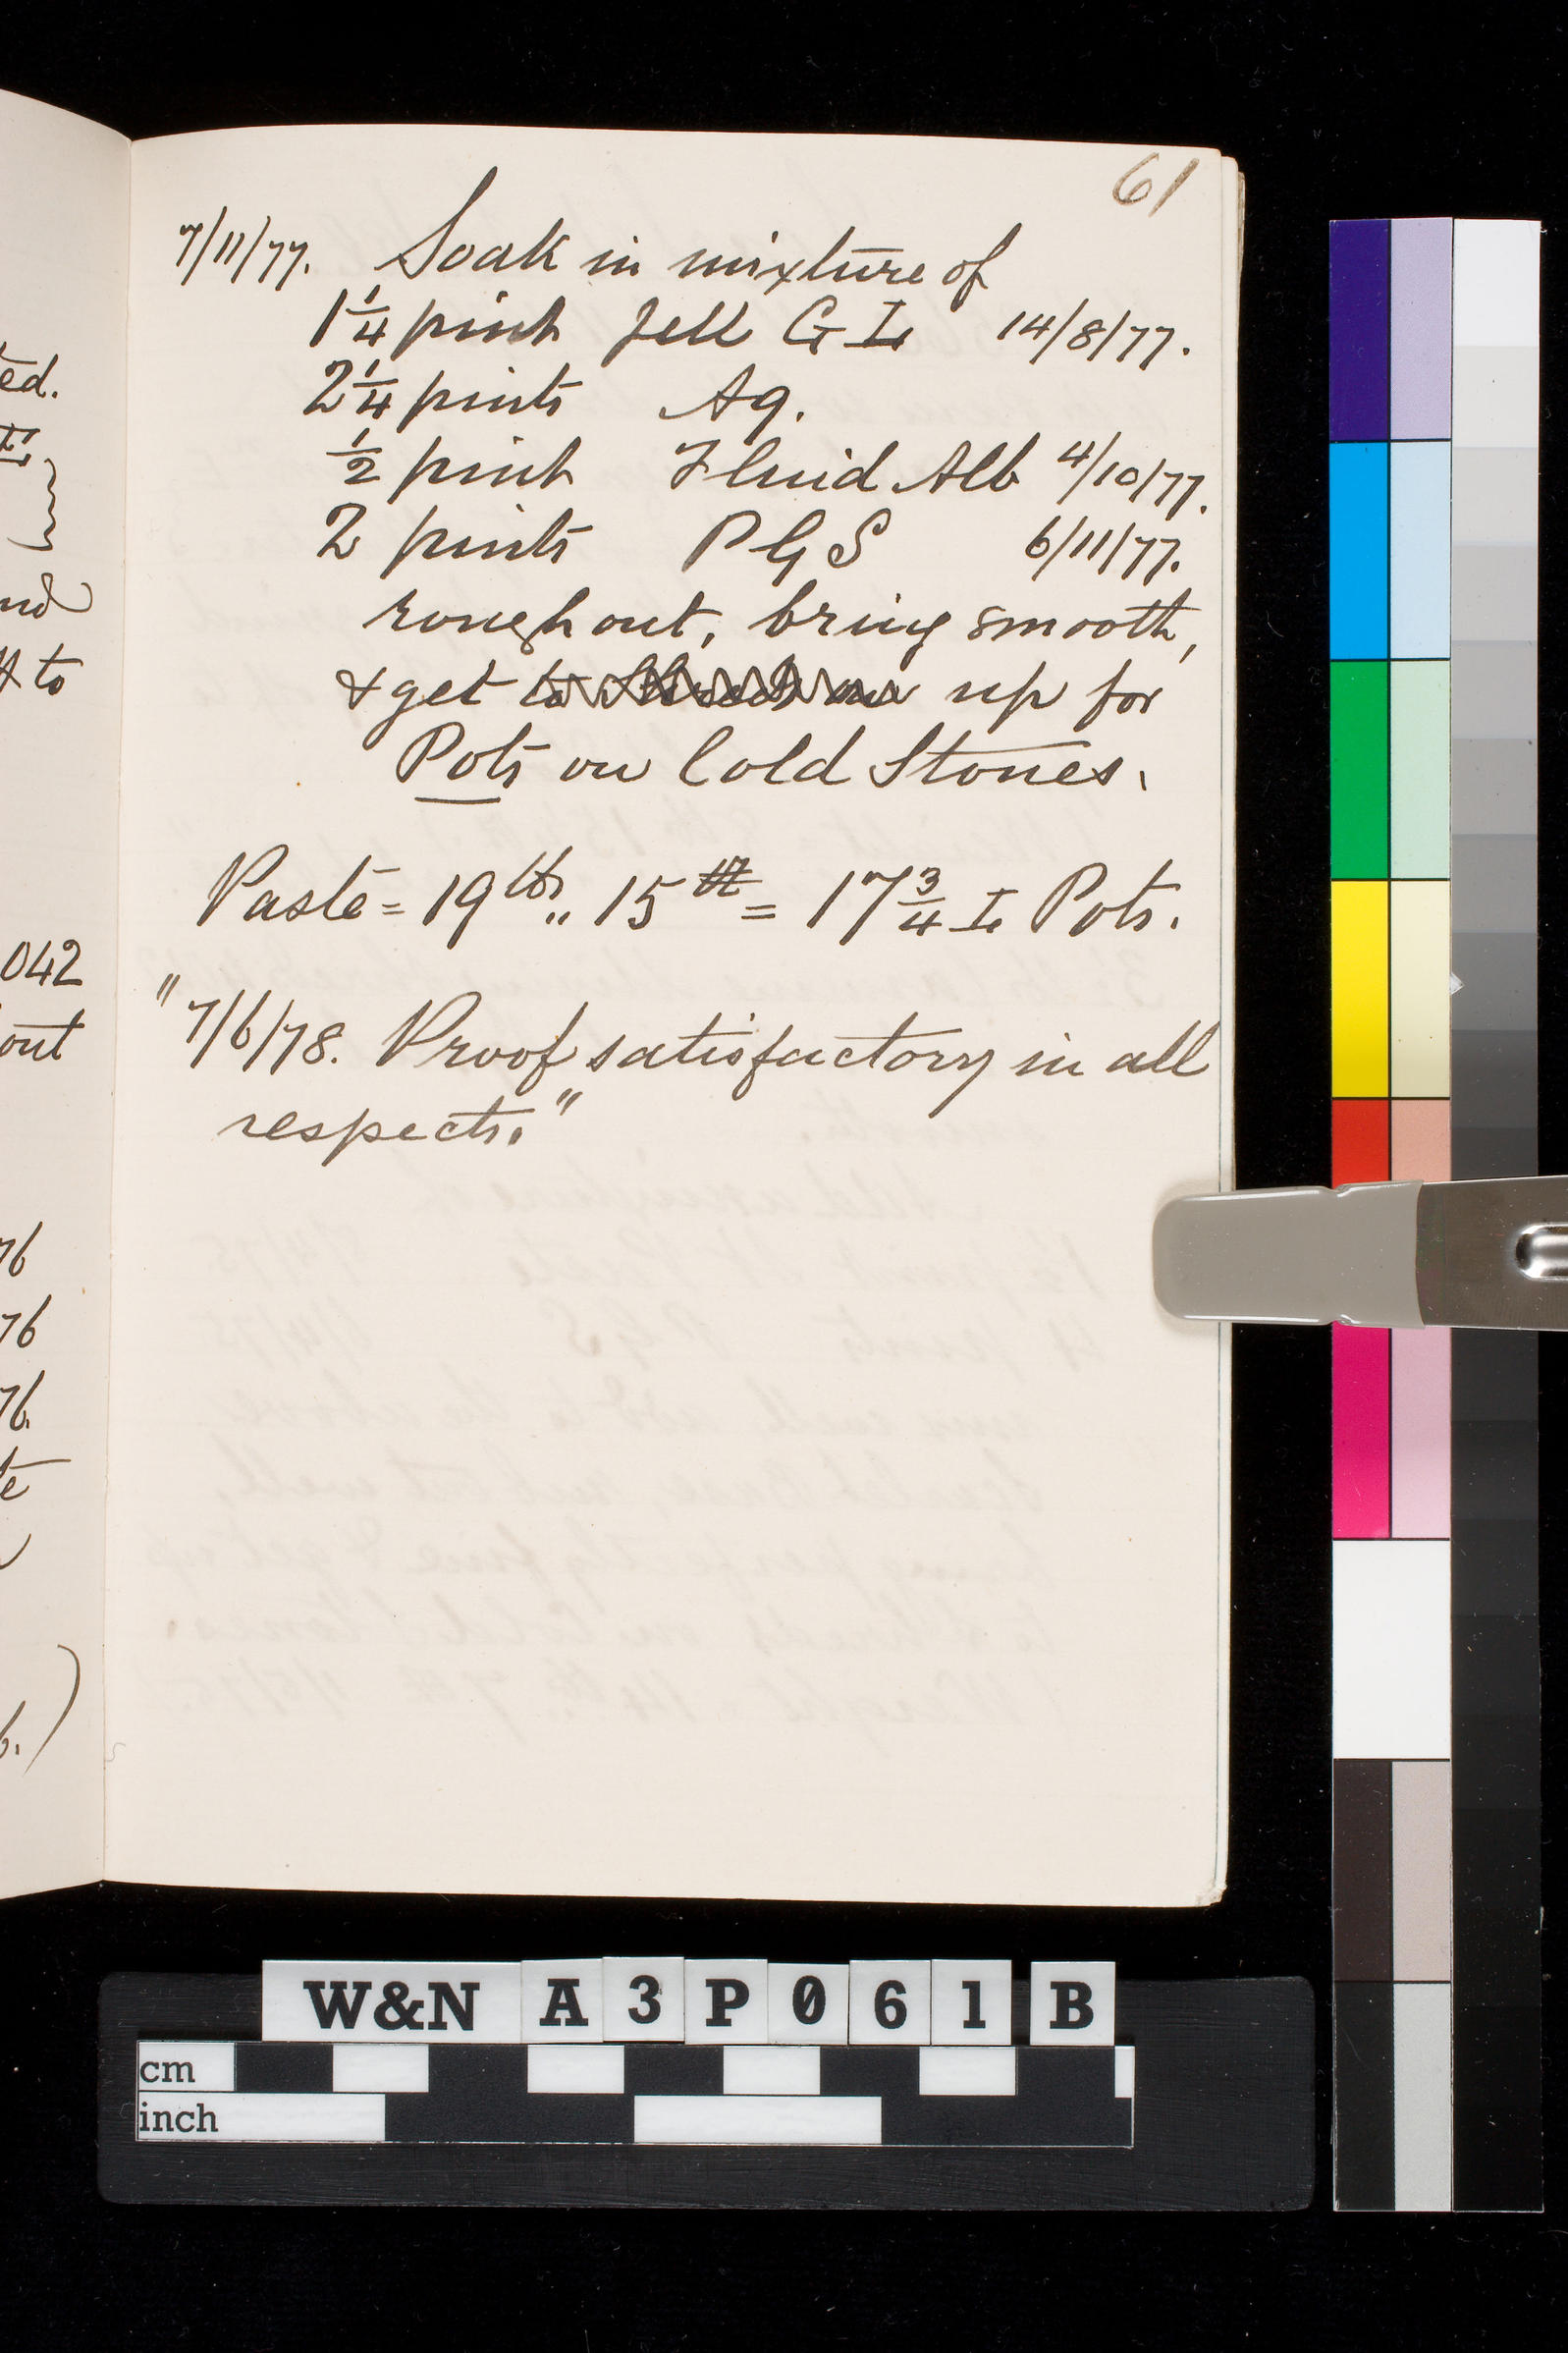 61
7/11/77. Soak in mixture of
1 1/4 pint Jell G L 14/8/77.
2 1/4 pints Aq.
1/2 pint Fluid Alb 4/10/77.
2 pints P G S 6/11/77.
rough out, bring smooth,
& get up for
Pots on Cold Stones.
Paste = 19 lbs,, 15 = 17 3/4 L Pots.
"7/6/78. Proof satisfactory in all
respects."
ed.
nd
to
042
out
76
76
76.
te
W&N A3P061 B
cm
inch